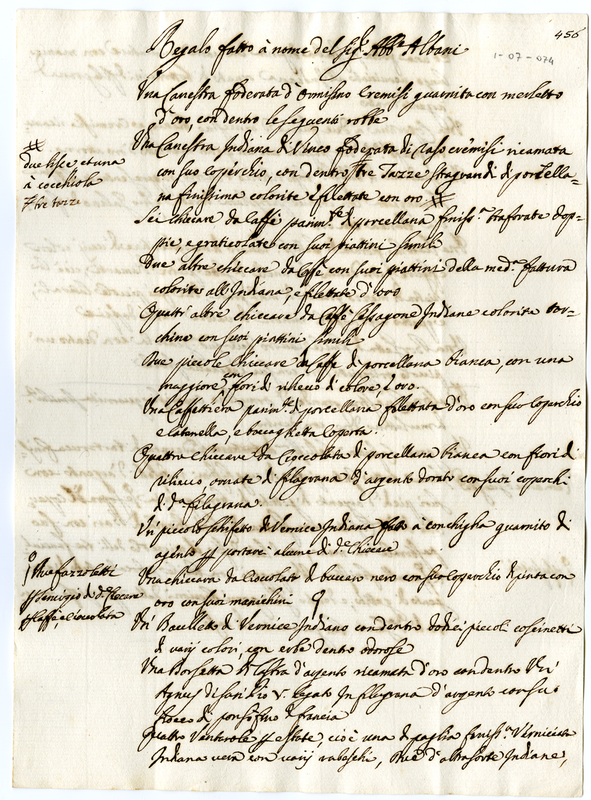 456
1-07-074
Regalo fatto à nome del Sig.r Abb.e Albani
Una Canestra foderata d'Ormisino Cremisi guarnita con merletto
d'oro, con dentro le seguenti robbe
Una Canestra Indiana di Vinco foderata di raso cremisi ricamata
con suo coperchio, con dentro tre Tazze stragrandi di porcella=
na finissima colorite e filettate con oro #
#
due lisce et una
à cocchiola
tre tazze
Sei chiccare da Caffè parim.te di porcellana finiss.a traforate dop=
pie, e graticolate con suoi piattini simili
Due altre chiccare da Caffe con suoi piattini della med.a fattura
colorite all'Indiana, e filettate d'oro
Quattr'altre chiccare da Caffè Indiane colorite tor=
chino con suoi piattini simili
Due piccole chiccare da Caffe di porcellana bianca, con una
maggiore con fiori di rilievo di colore, e oro.
Una Caffettiera parim.te di porcellana filettata d'oro con suo coperchio
e catenella, e
Quattro chiccare da Cioccolata di porcellana bianca con fiori di
rilievo ornate di filagrana d'argento dorato con suoi coperchi
di d.a filagrana.
Un piccolo schifetto di Vernice Indiana fatto à conchiglia guarnito di
argento p portare alcune di d.e Chiccare
Una chiccara da Cioccolato di buccaro nero con suo coperchio dipinta con
oro con suoi manichini
Due fazzoletti
p servigio di d.e Chiccare
p Caffè, e Cioccolata
Un Baulletto di Vernice Indiano con dentro dodici piccoli coscinetti
di varij colori, con erbe dentro odorose
Una Borsetta di lastra d'argento ricamata d'oro con dentro Un'
Agnus di San Pio V. legato in filagrana d'argento con suo
fiocco di ponsò fino di francia
Quattro Ventarole p estate cioè una di paglia finiss.a Verniciata
Indiana vera con varij rabeschi, Due d'altra sorte Indiane,